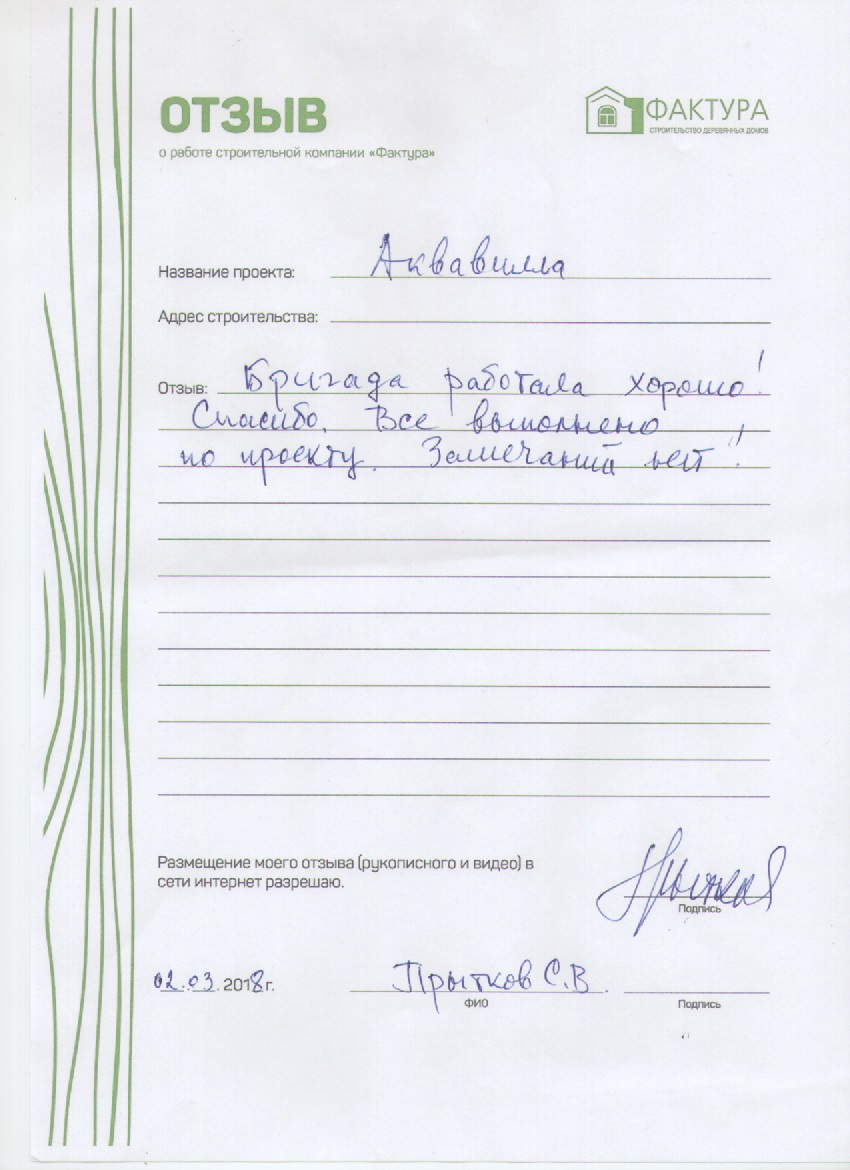 ОТЗЫВ
о работе строительной компании «Фактура»
ФАКТУРА
СТРОИТЕЛЬСТВО ДЕРЕВЯННЫХ ДОМОВ
Название проекта: Аквавилла
Адрес строительства:
Отзыв: Бригада работала хорошо!
Спасибо. Все выполнено
по проекту. Замечаний нет!
Размещение моего отзыва (рукописного и видео) в
сети интернет разрешаю.
Прытков
Подпись
02.03.2018г. Прытков С.В.
ФИО Подпись